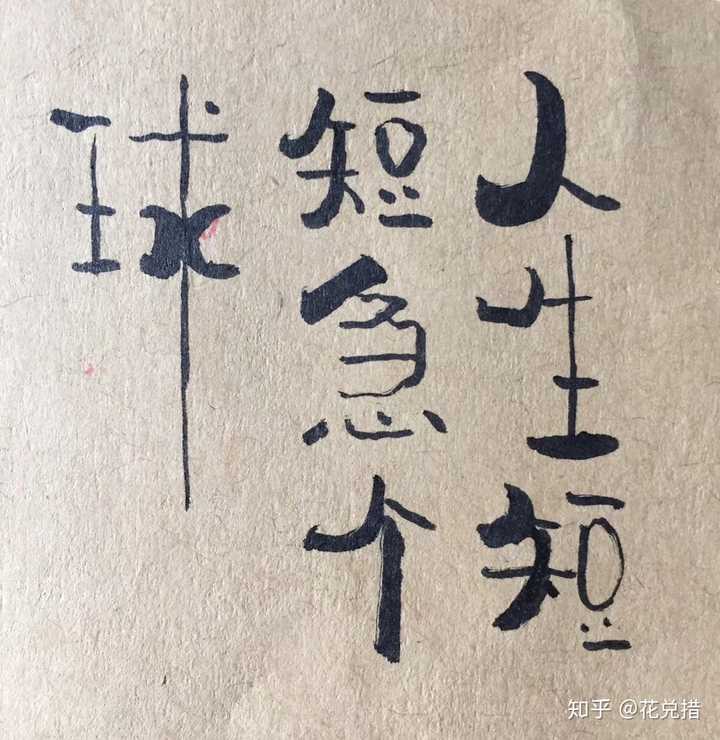 人生短
短急个
球
知乎 @花兑措